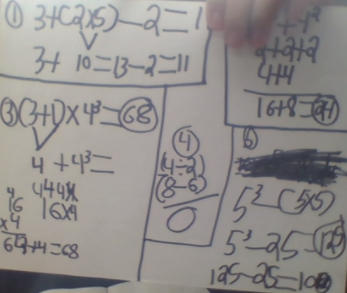 ① 3+(2x5)-2=1
3+ 10=13-2=11
+4²
2+2+2
4+4
16+8=24
③ (3+1)x4³=68
4 +4³=
444x
4
16 16x4
x4
64+4=68
④
(4-2)
(8-6)
0
6
5³-(5x5)
5³-25-125
125-25=100